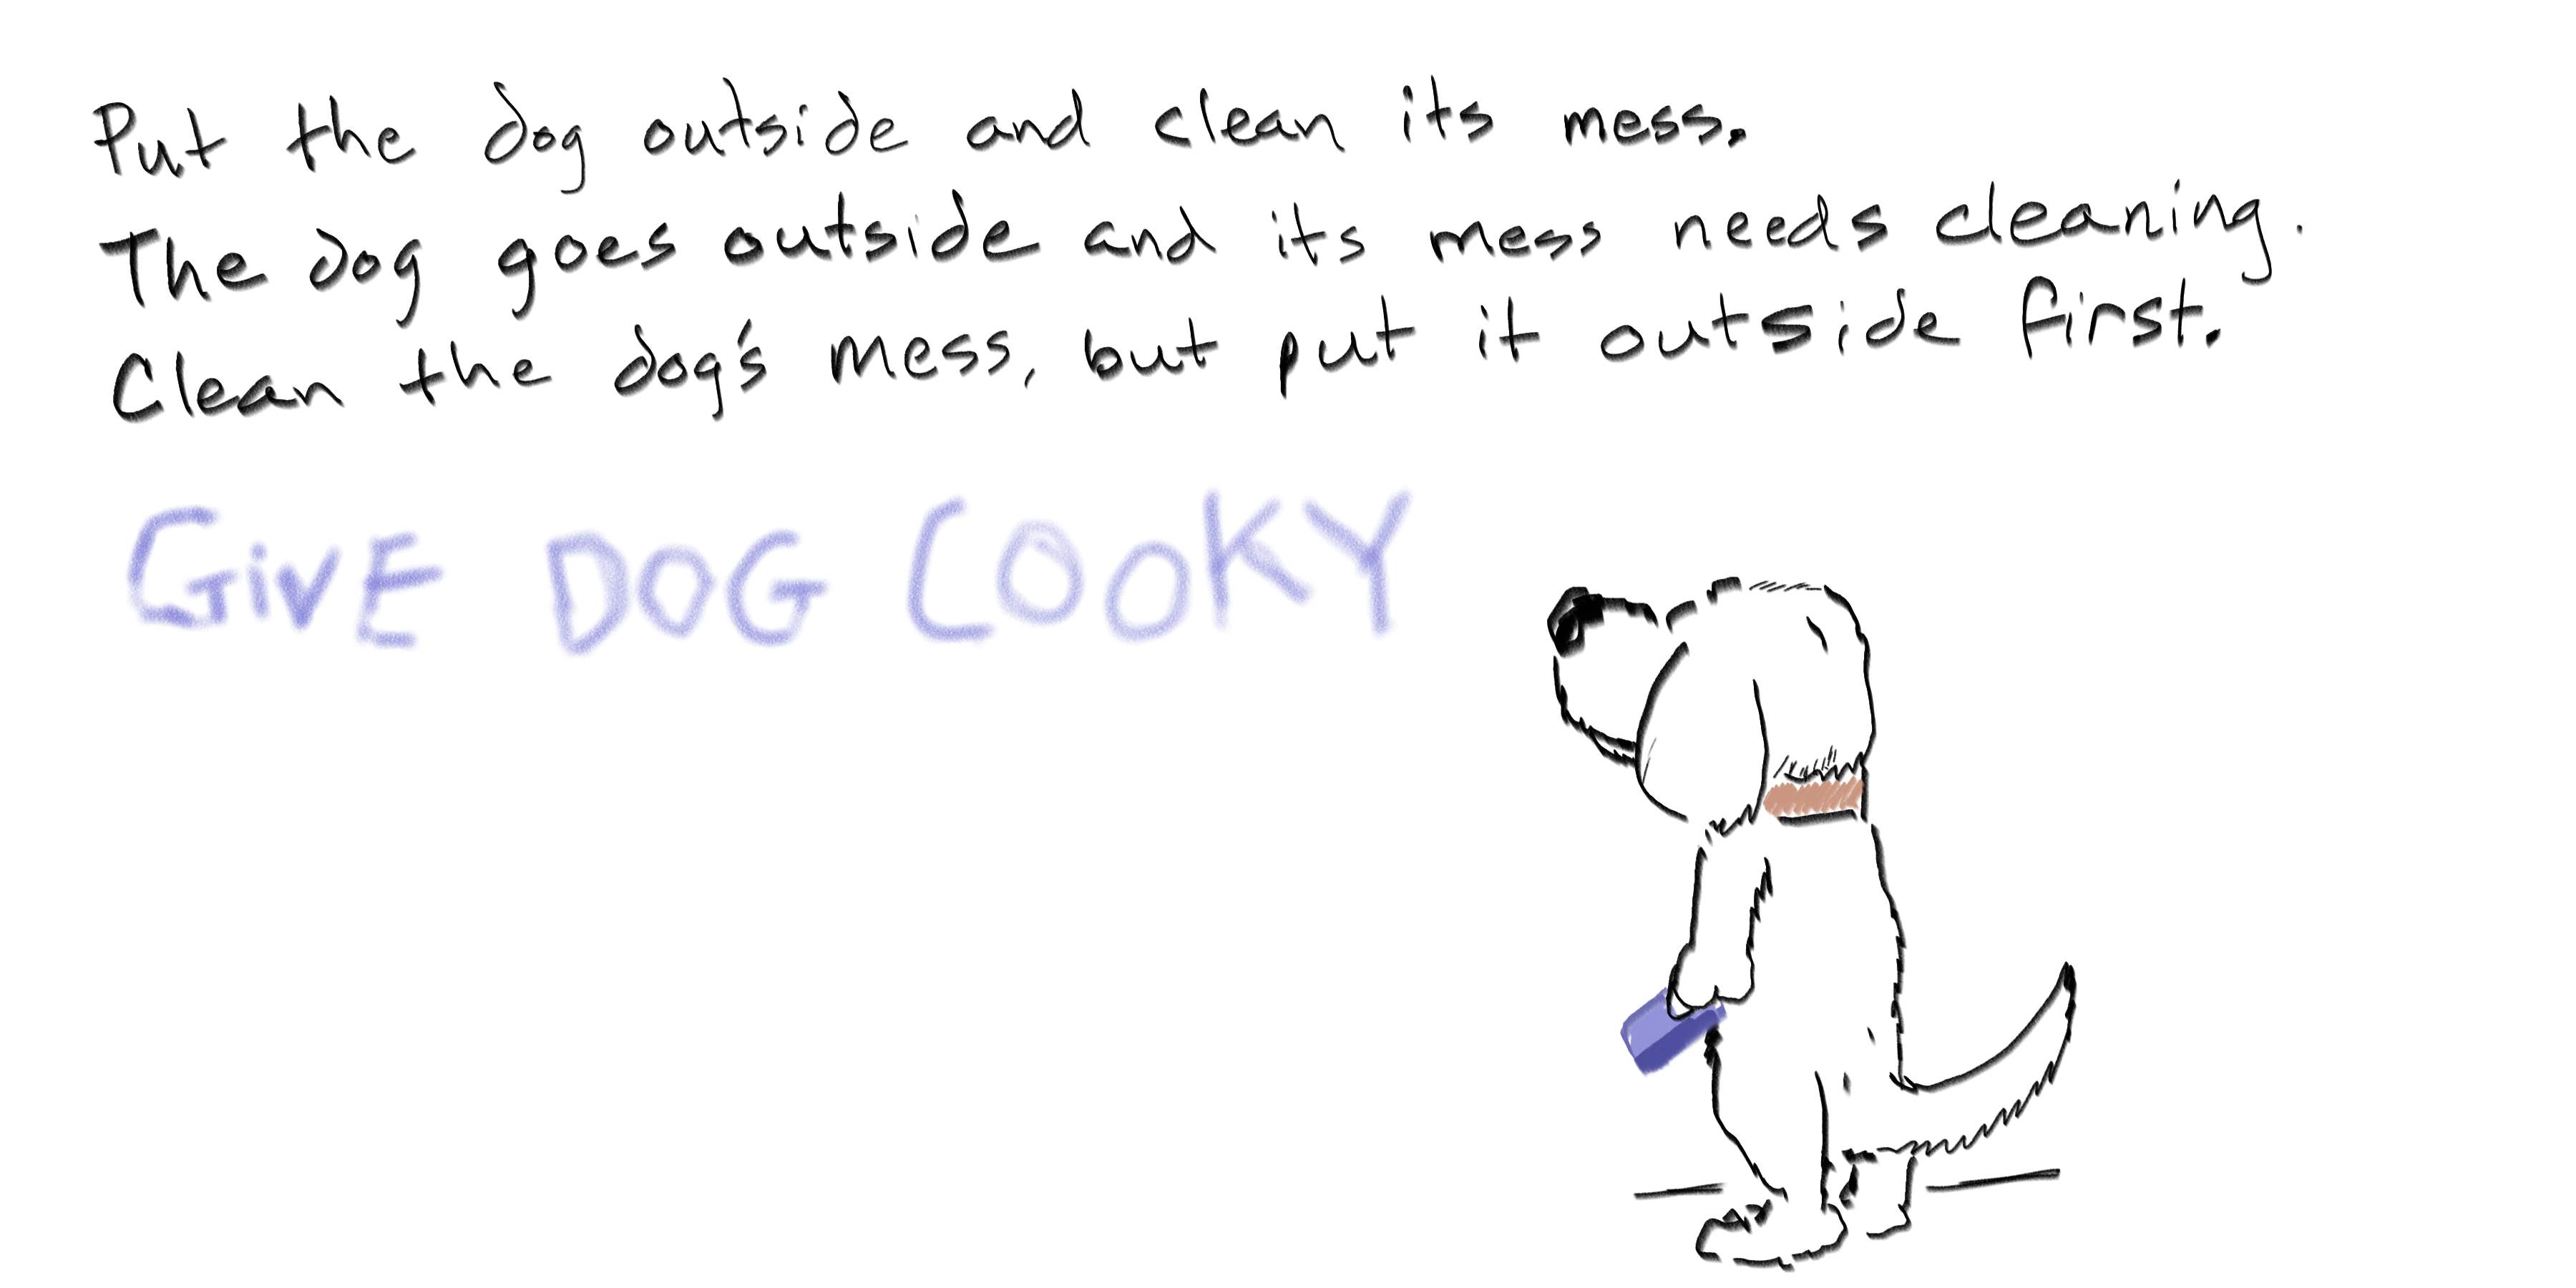 Put the dog outside and clean its mess.
The dog goes outside and its mess needs cleaning.
Clean the dog's mess, but put it outside first.
GivE DOG COOKY